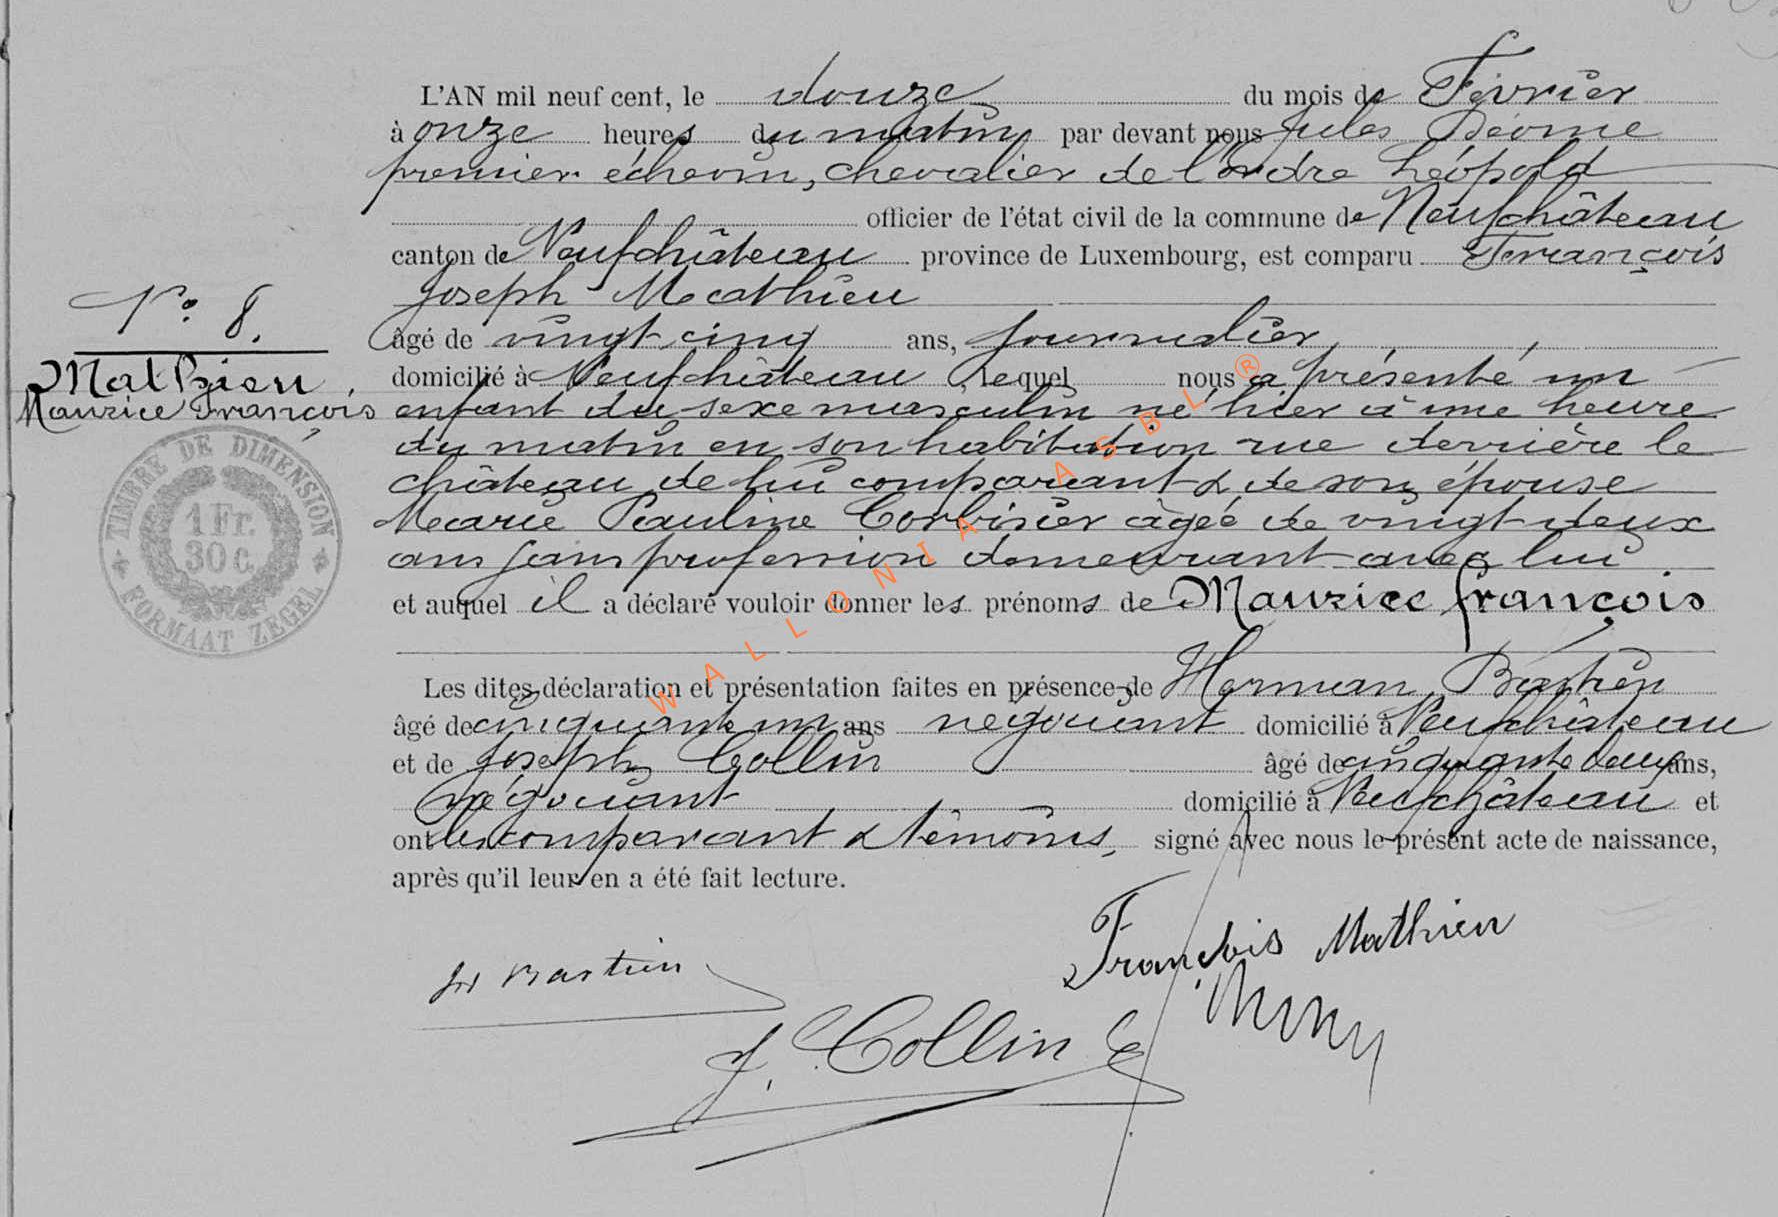 L'AN mil neuf cent, le douze du mois de Février
à onze heures du matin par devant nous Jules Déome
premier échevin, chevalier de l'ordre Léopold
officier de l'état civil de la commune de Neufchâteau
canton de Neufchâteau province de Luxembourg, est comparu François
Joseph Mathieu
N° 8.
âgé de vingt cinq ans, journalier,
Mathieu
domicilié à Neufchâteau, lequel nous a présenté un
Maurice François
enfant du sexe masculin né hier à une heure
du matin en son habitation rue derrière le
château de lui comparant & de son épouse
Marie Pauline Corbisier âgée de vingt-deux
ans sans profession demeurant avec lui
et auquel il a déclaré vouloir donner les prénoms de Maurice François
TIMBRE DE DIMENSION
1 Fr.
30 c.
FORMAAT ZEGEL
Les dites déclaration et présentation faites en présence de Herman Bastien
âgé de cinquante un ans négociant domicilié à Neufchâteau
et de Joseph Collin âgé de cinquante deux ans,
négociant domicilié à Neufchâteau et
ont les comparant & témoins, signé avec nous le présent acte de naissance,
après qu'il leur en a été fait lecture.
François Mathieu
H Bastien
J. Collin
WALLONIA ASBL ®